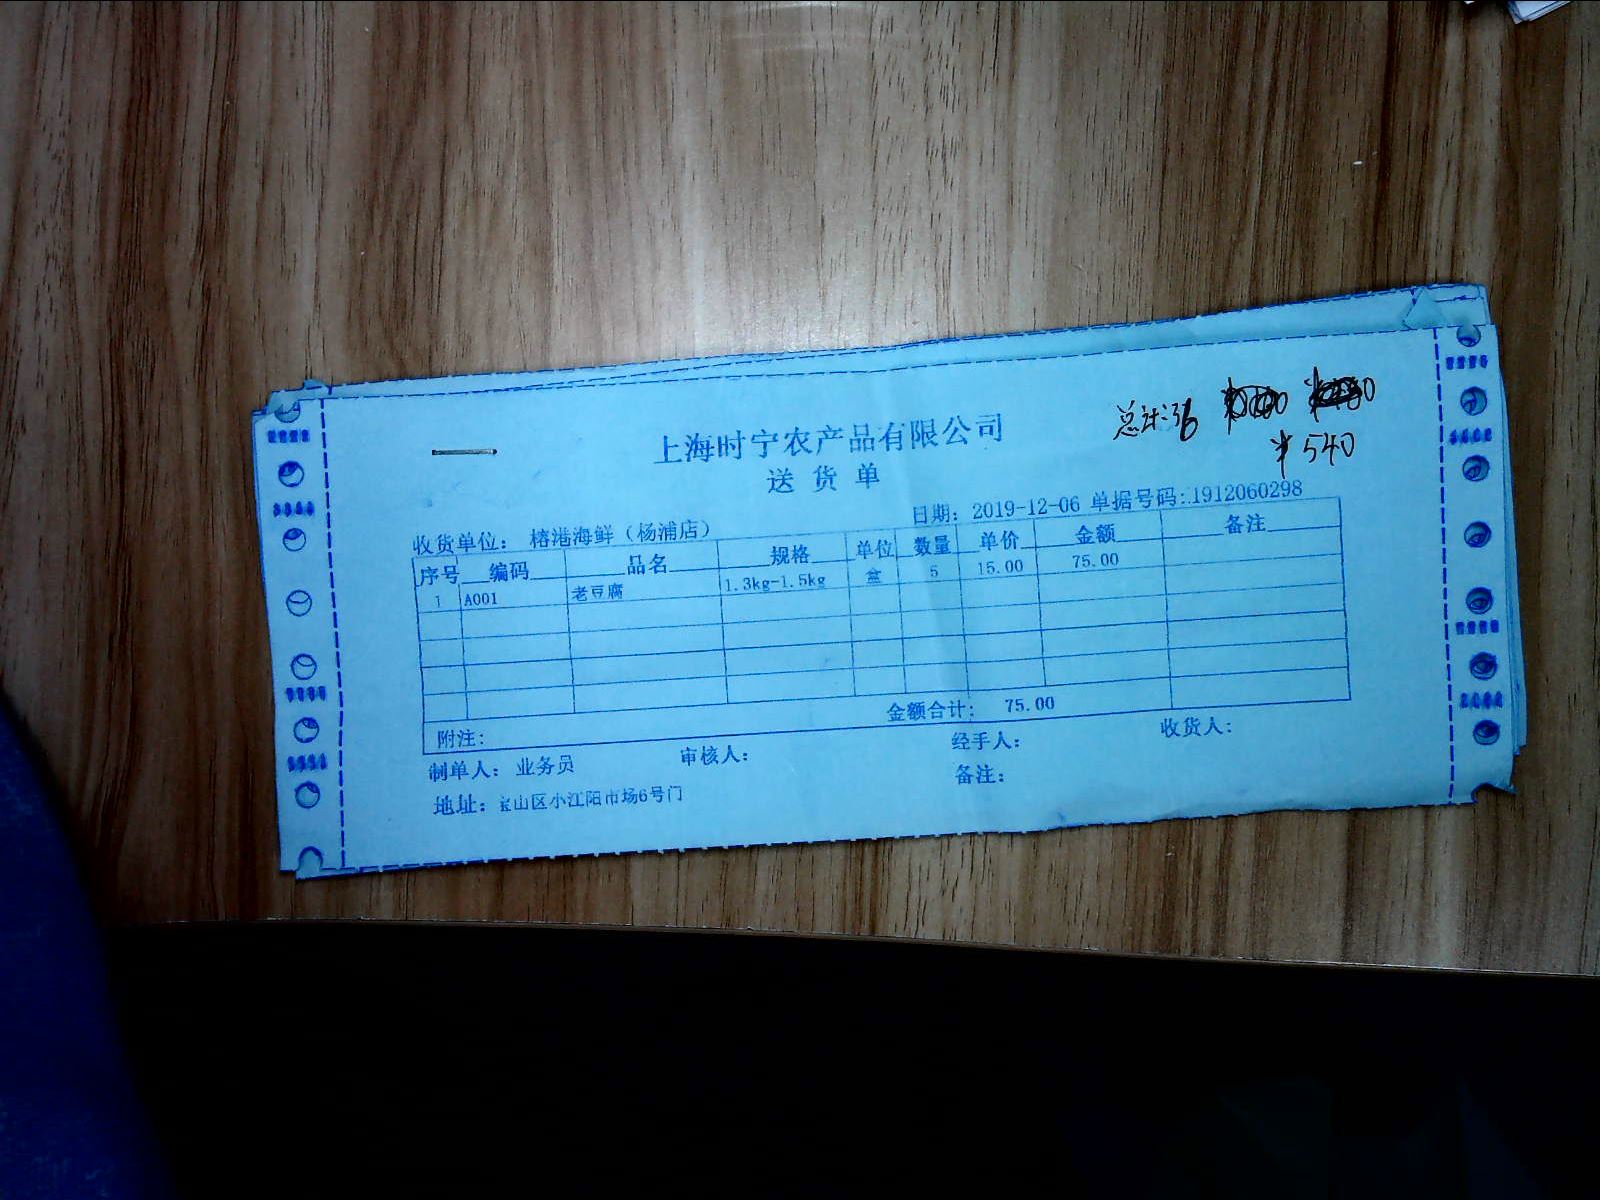 上海时宁农产品有限公司
送货单
总计:
¥540
日期: 2019-12-06 单据号码:1912060298
收货单位: 榕港海鲜（杨浦店）
序号 编码 品名 规格 单位 数量 单价 金额 备注
1 A001 老豆腐 1.3kg-1.5kg 盒 5 15.00 75.00
金额合计: 75.00
附注:
制单人: 业务员 审核人: 经手人: 收货人:
地址: 宝山区小江阳市场6号门 备注: